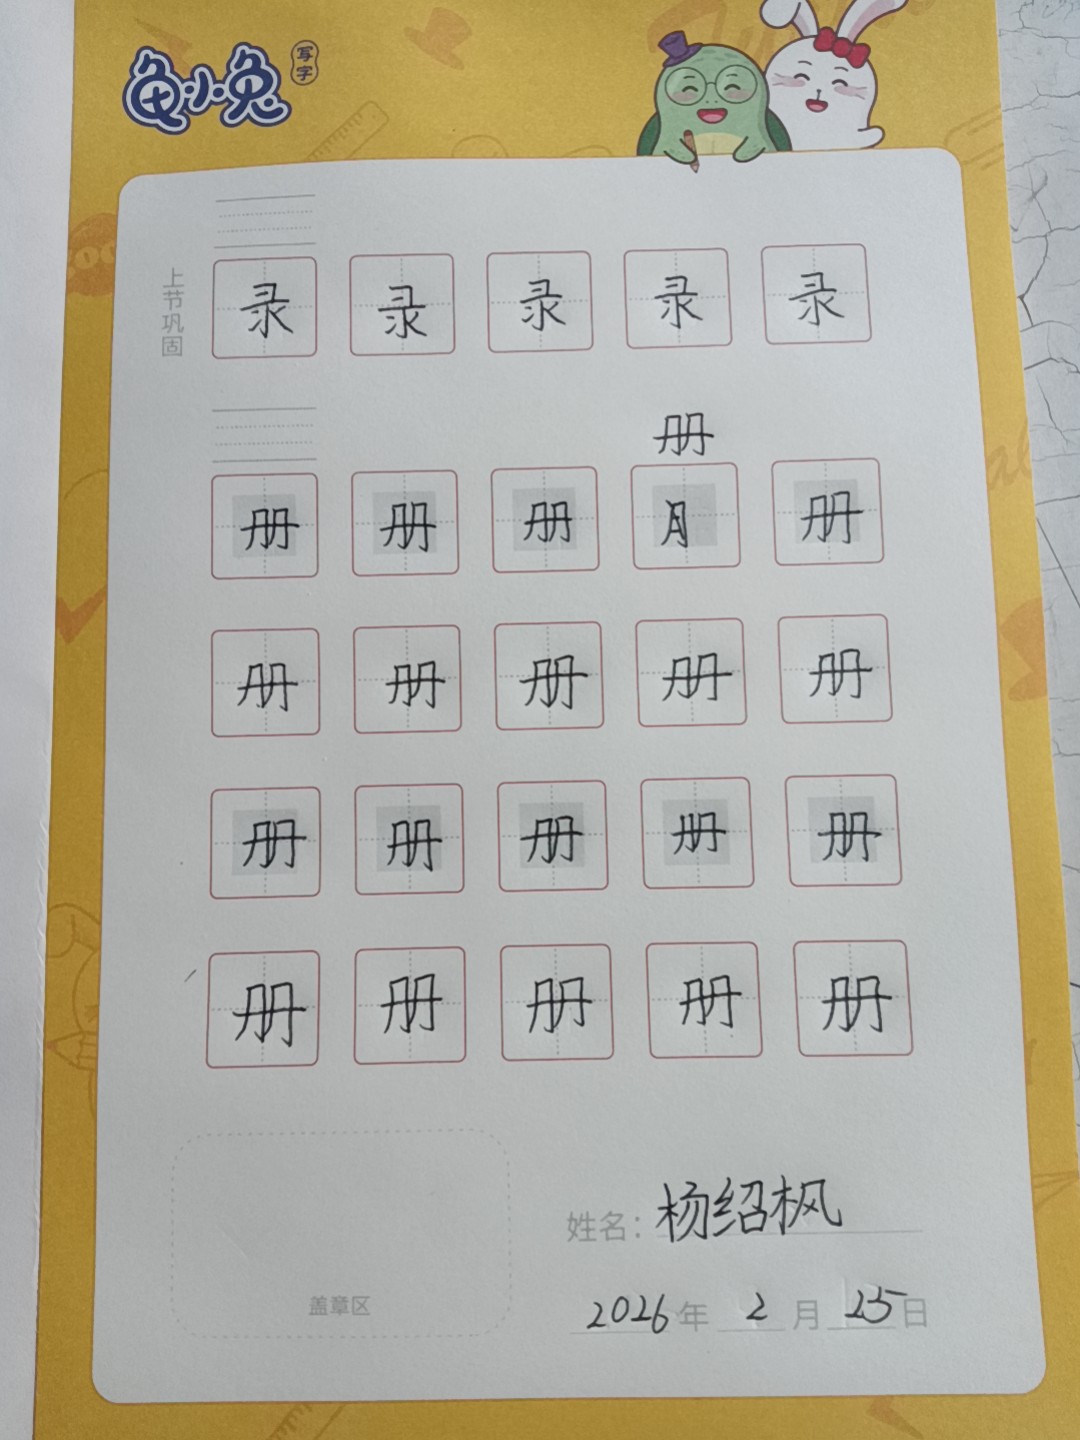 龟小兔
写字
上节巩固
录 录 录 录 录
册
册 册 册 月 册
册 册 册 册 册
册 册 册 册 册
册 册 册 册 册
姓名：杨绍枫
盖章区
2026年2月25日